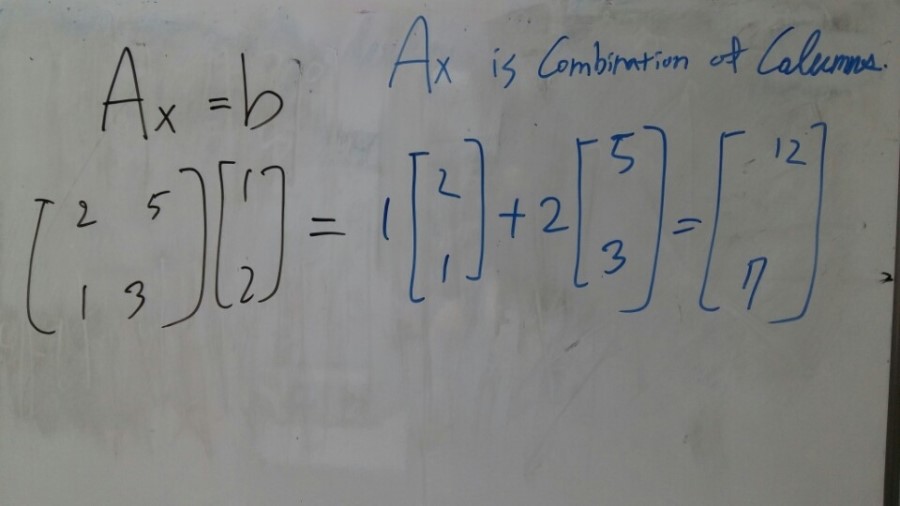 Ax = b
Ax is Combination of Columns.
[2 5
1 3] [1
2] = 1 [2
1] + 2 [5
3] = [12
7]